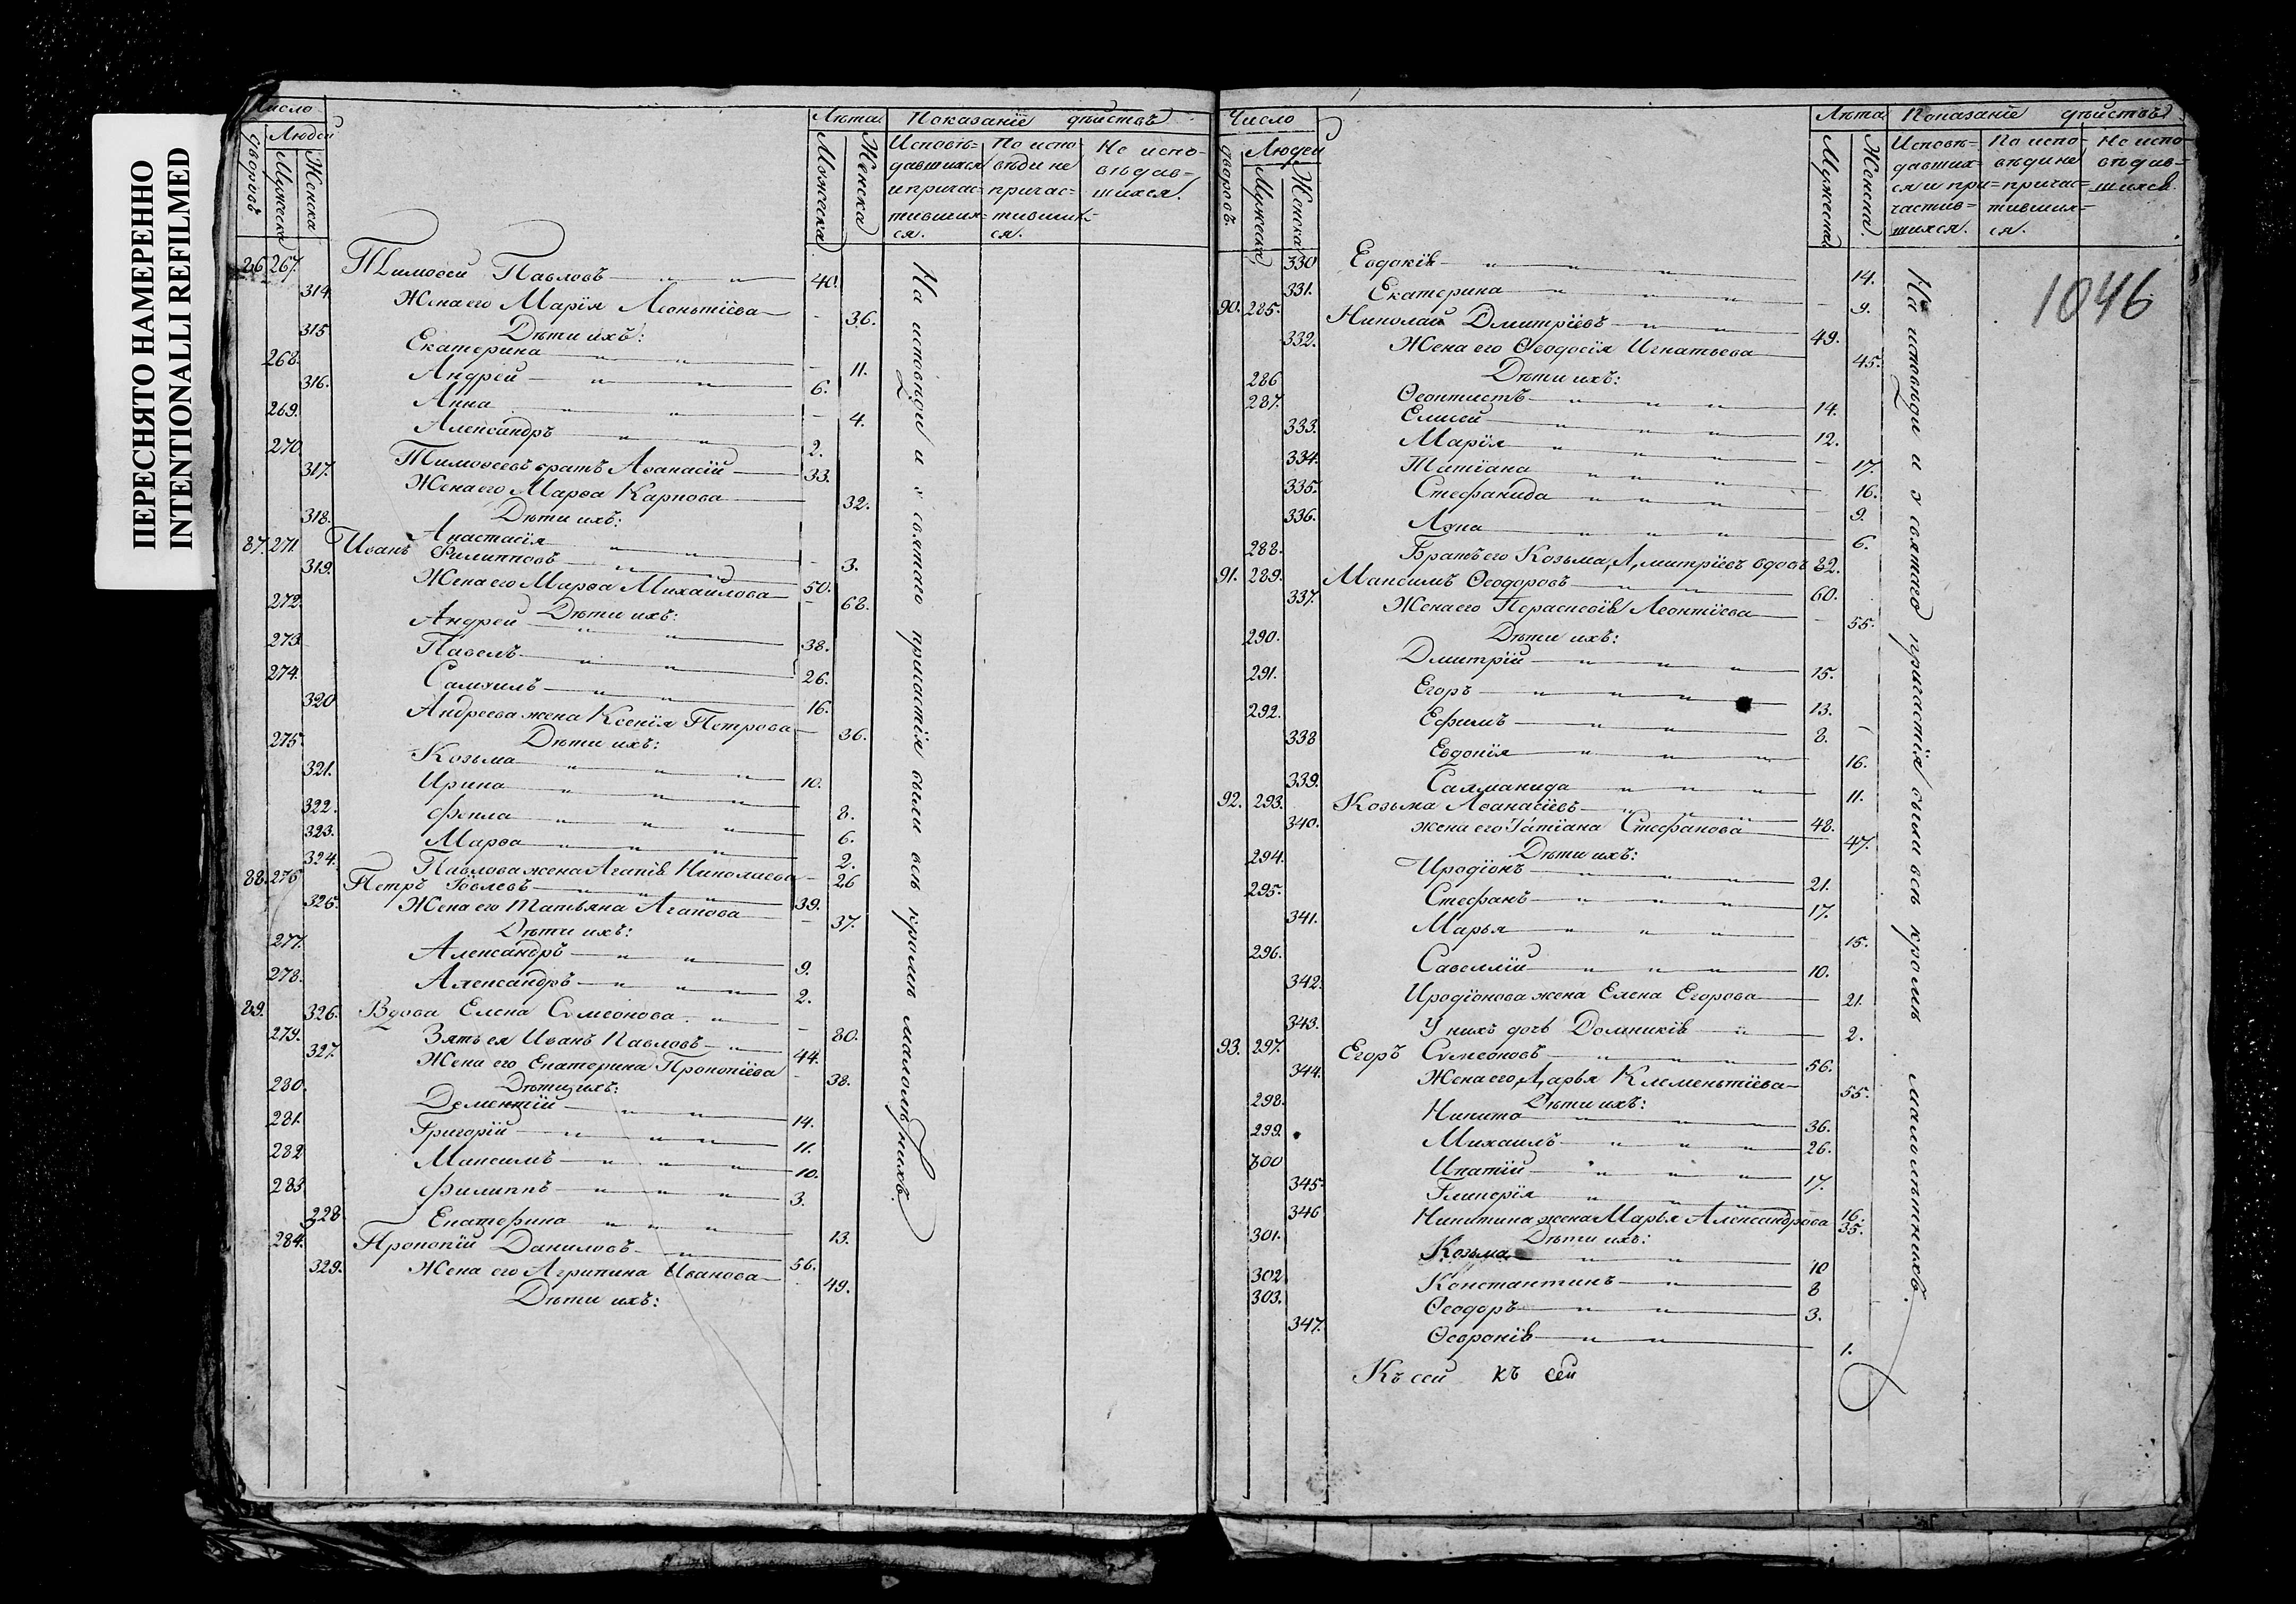 ПЕРЕСНЯТО НАМЕРЕННО
INTENTIONALLI REFILMED
Число
Лѣта Показанїе дѣйствъ
дворовъ Людей Мужеска Женска
Мужеска Женска
Исповѣ=давшихся и причас=тивших=ся.
По испо вѣди не причас=тивших=ся.
Не испо=вѣдав=шихся.
26 267. Тимоѳей Павловъ 40.
314. Жена его Марїя Леонтїева 36.
Дѣти ихъ:
315 Екатерина 11.
268. Андрей 6.
316. Анна 4.
269. Александръ 2.
270. Тимоѳеевъ братъ Аѳанасїй 33.
317. Жена его Марѳа Карпова 32.
Дѣти ихъ:
318. Анастасїя 3.
87. 271. Иванъ Филипповъ 50.
319. Жена его Марѳа Михайлова 68.
Дѣти ихъ:
272. Андрей 38.
273. Павелъ 26.
274. Самуилъ 16.
320 Андреева жена Ксенїя Петрова 36.
Дѣти ихъ:
275. Козьма 10.
321. Ирина 8.
322. Фекла 6.
323. Марѳа 2.
324. Павлова жена Агапїя Николаева 26
88. 276 Петръ Іовлевъ 39.
325. Жена его Татьяна Агапова 37.
Дѣти ихъ:
277. Александръ 9.
278. Александръ 2.
89. 326. Вдова Елена Сѵмеонова 80.
279. Зять ея Иванъ Павловъ 44.
327. Жена его Екатерина Прокопїева 38.
Дѣти ихъ:
280. Дементїй 14.
281. Григорїй 11.
282 Максимъ 10.
283 Филиппъ 3.
328 Екатерина 13.
284. Прокопїй Даниловъ 56.
329. Жена его Агрипина Иванова 49.
Дѣти ихъ:
На исповѣди и у святаго причастїя были всѣ кромѣ малолѣтнихъ.
Число
Лѣта Показанїе дѣйствъ
дворовъ. Людей Мужеска Женска
Мужеска Женска.
Исповѣ=давших=ся и при=частив=шихся.
По испо=вѣди не причас=тивших=ся.
Не испо=вѣдав=шихся.
1046
330 Евдокїя 14.
331. Екатерина 9.
90. 285. Николай Дмитрїевъ 49.
332. Жена его Ѳеодосїя Игнатьева 45.
Дѣти ихъ:
286 Ѳеоктистъ 14.
287. Елисей 12.
333. Марїя 17.
334. Татїана 16.
335. Стефанида 9.
336. Анна 6.
288. Братъ его Козьма Дмитрїевъ вдовъ 82.
91. 289. Максимъ Ѳеодоровъ 60.
337. Жена его Параскевїя Леонтїева 55.
Дѣти ихъ:
290. Дмитрїй 15.
291. Егоръ 13.
292. Ефимъ 8.
338 Евдокїя 16.
339. Саломанида 11.
92. 293. Козьма Аѳанасїевъ 48.
340. жена его Татїана Стефанова 47.
Дѣти ихъ:
294. Иродїонъ 21.
295. Стефанъ 17.
341. Марья 15.
296. Савеллїй 10.
342. Иродїонова жена Елена Егорова 21.
343. У нихъ дочь Домникїя 2.
93. 297. Егоръ Сѵмеоновъ 56.
344. Жена его Дарья Клементїева 55.
Дѣти ихъ:
298. Никита 36.
299. Михаилъ 26.
300 Ипатїй 17.
345. Гликерїя 16.
346 Никитина жена Марья Александрова 35.
Дѣти ихъ:
301. Козьма 10
302 Константинъ 8
303. Ѳеодоръ 3.
347. Ѳевронїя 1.
Къ сей къ сей
На исповѣди и у святаго причастїя были всѣ кромѣ малолѣтнихъ.